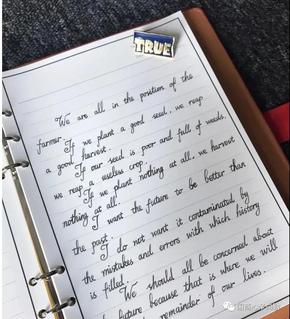 TRUE
We are all in the position of the
farmer. If we plant a good seed, we reap
a good harvest.
If our seed is poor and full of weeds,
we reap a useless crop.
If we plant nothing at all, we harvest
nothing at all.
I want the future to be better than
the past.
I do not want it contaminated by
the mistakes and errors with which history
is filled.
We should all be concerned about
future because that is where we will
remainder of our lives.